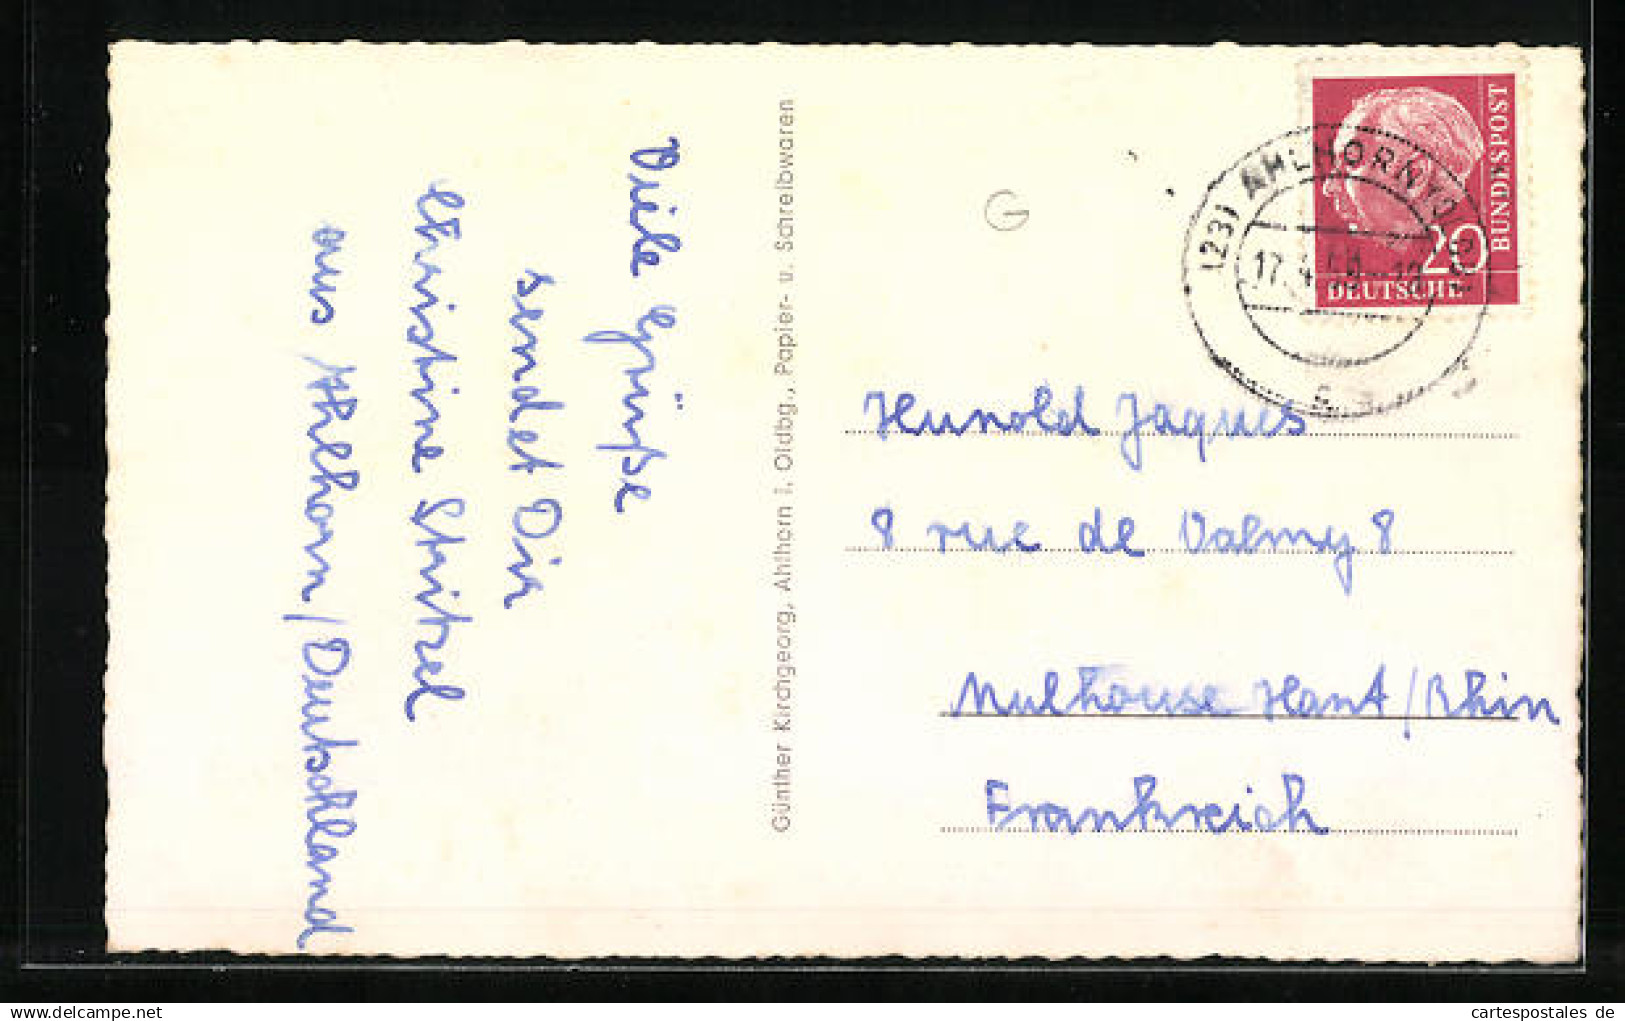 Viele Grüße
sendet Dir
Christine Stritzel
aus Ahlhorn/Deutschland
Günther Kirchgeorg, Ahlhorn i. Oldbg., Papier- u. Schreibwaren
G
(23) AHLHORN
17.4.
DEUTSCHE
BUNDESPOST
20
Hunold Jaques
8 rue de Valmy 8
Mulhouse Haut/Rhin
Frankreich
www.cartespostales.de
cartespostales de